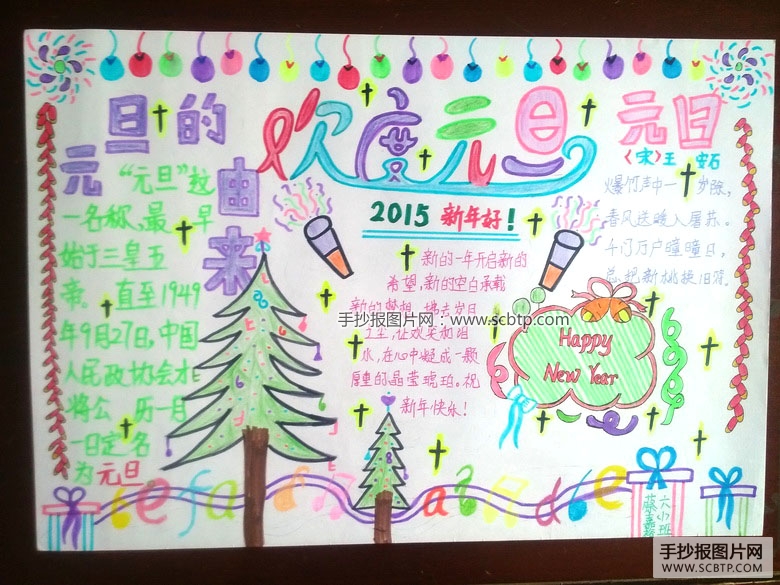 欢度元旦
元旦的由来
“元旦”这
一名称,最早
始于三皇五
帝。直至1949
年9月27日,中国
人民政协会才
将公历一月
一日定名
为元旦
2015 新年好!
新的一年开启新的
希望,新的空白承载
新的梦想。拂去岁月
之尘,让欢笑和泪
水,在心中凝成一颗
厚重的晶莹琥珀。祝
新年快乐!
元旦
(宋)王安石
爆竹声中一岁除,
春风送暖入屠苏。
千门万户曈曈日,
总把新桃换旧符。
Happy
New Year
手抄报图片网:www.scbtp.com
六小班
手抄报图片网
WWW.SCBTP.COM